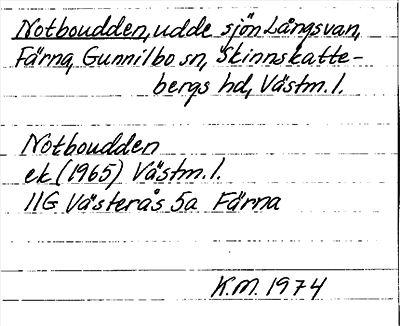 Notboudden, udde sjön Långsvan,
Färna, Gunnilbo sn, Skinnskatte-
bergs hd, Västm. l.
Notboudden
ek (1965) Västm. l.
11G Västerås 5a Färna
K.M. 1974